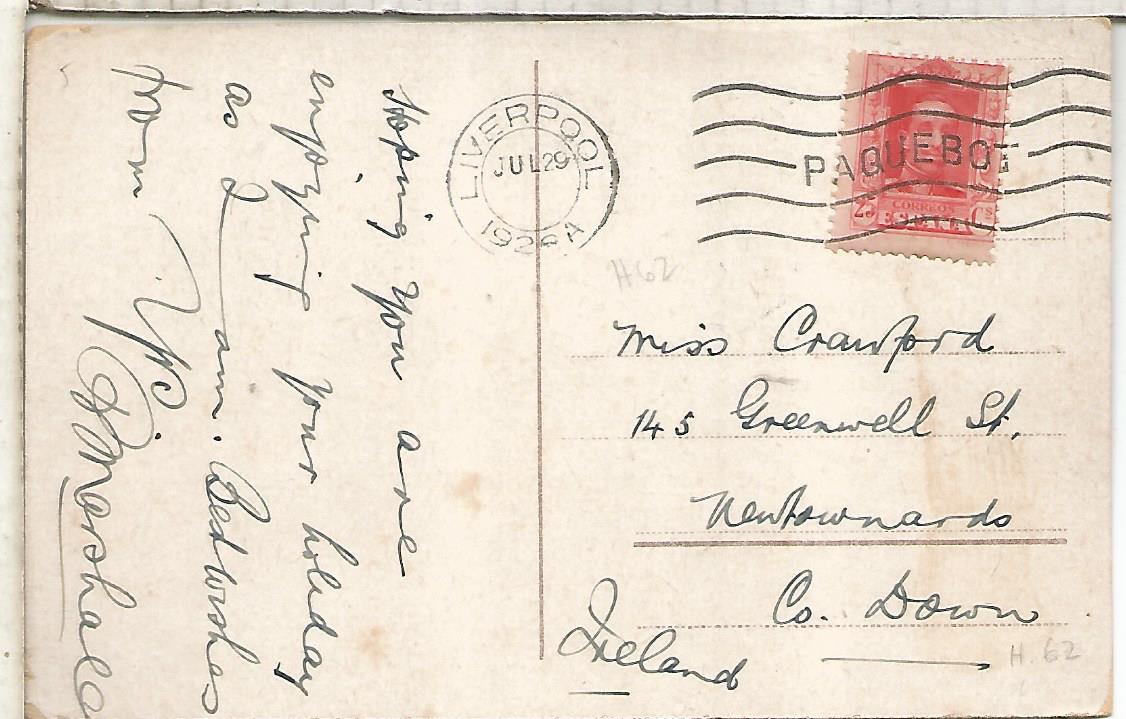 Hoping you are
enjoying your holiday
as I am. Best wishes
from
Marshall
LIVERPOOL
JUL 29
192 A
PAQUEBOT
25 CORREOS Cs
ESPAÑA
H62
Miss Crawford
145 Greenwell St.
Newtownards
Co. Down
Ireland
H. 62